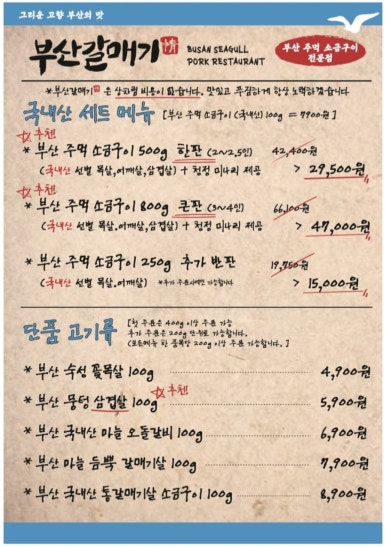 그리운 고향 부산의 맛
부산갈매기 情
BUSAN SEAGULL
PORK RESTAURANT
부산 주먹 소금구이
전문점
*부산갈매기 은 상차림 비용이 없습니다. 맛있고 푸짐하게 항상 노력하겠습니다
국내산 세트 메뉴 [부산 주먹 소금구이 (국내산) 100g = 7900원]
강추!
* 부산 주먹 소금구이 500g 한판 (2~2.5인) 42,400원
(국내산 선별 목살,어깨살,삼겹살) + 청정 미나리 제공 > 29,500원
강추!
* 부산 주먹 소금구이 800g 큰판 (3~4인) 66,100원
(국내산 선별 목살,어깨살,삼겹살) + 청정 미나리 제공 > 47,000원
* 부산 주먹 소금구이 250g 추가 반판 19,750원
(국내산 선별 목살,어깨살) *추가 주문시에만 가능합니다 > 15,000원
단품 고기류
[첫 주문은 400g 이상 주문 가능
추가 주문은 200g 단위로 가능합니다.
(모든메뉴 한 품목당 200g 이상 주문 가능합니다.]
* 부산 숙성 꽃목살 100g 4,900원
강추!
* 부산 뭉텅 삼겹살 100g 5,900원
* 부산 국내산 마늘 오돌갈비 100g 6,900원
* 부산 마늘 듬뿍 갈매기살 100g 7,900원
* 부산 국내산 통갈매기살 소금구이 100g 8,900원